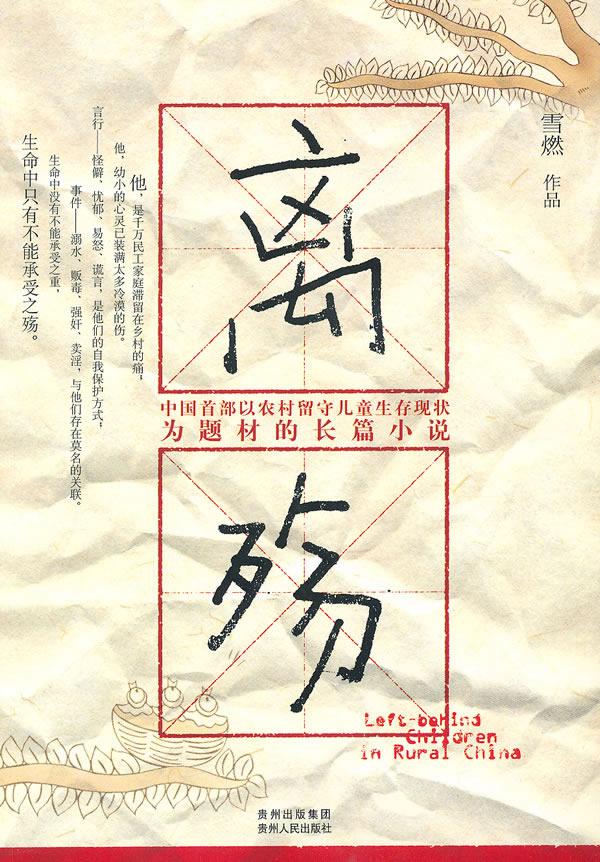 雪燃 作品
离
中国首部以农村留守儿童生存现状
为题材的长篇小说
殇
他，是千万民工家庭滞留在乡村的痛；
他，幼小的心灵已装满太多冷漠的伤。
言行——怪僻、忧郁、易怒、谎言，是他们的自我保护方式；
事件——溺水、贩毒、强奸、卖淫，与他们存在莫名的关联。
生命中没有不能承受之重，
生命中只有不能承受之殇。
Left-behind
Children
in Rural China
贵州出版集团
贵州人民出版社